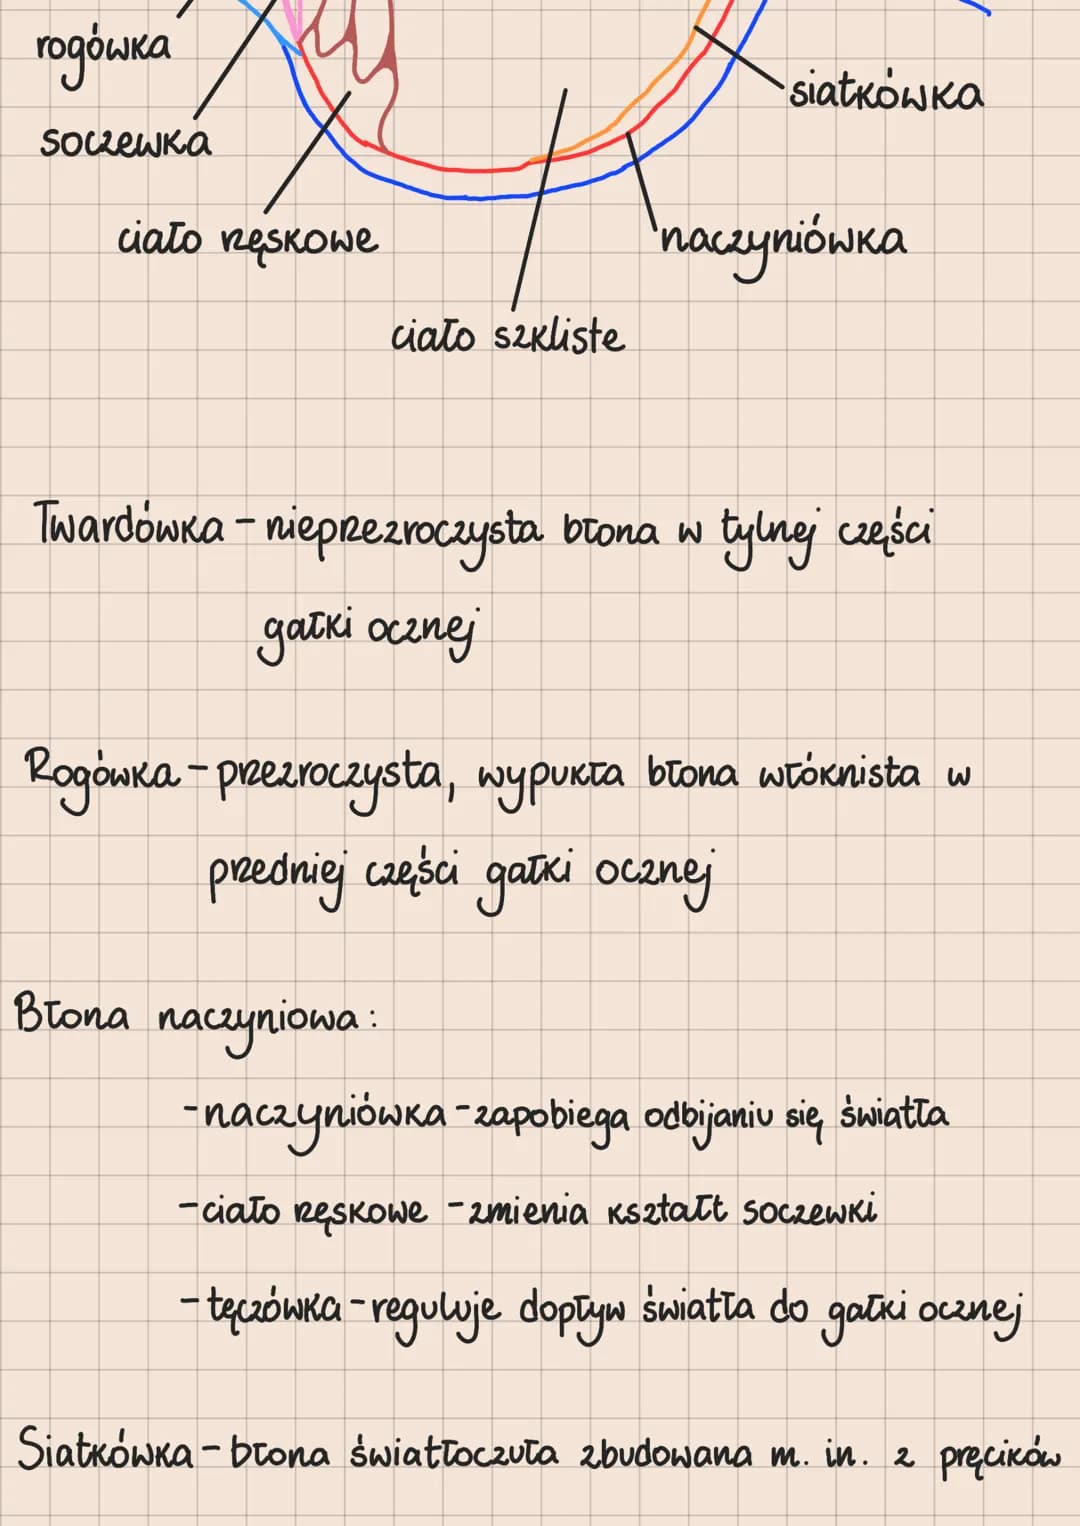 rogówka
siatkówka
soczewka
ciało rzęskowe
naczyniówka
ciało szkliste
Twardówka – nieprzezroczysta błona w tylnej części
gałki ocznej
Rogówka – przezroczysta, wypukła błona włóknista w
przedniej części gałki ocznej
Błona naczyniowa:
- naczyniówka – zapobiega odbijaniu się światła
- ciało rzęskowe – zmienia kształt soczewki
- tęczówka – reguluje dopływ światła do gałki ocznej
Siatkówka – błona światłoczuła zbudowana m. in. z pręcików